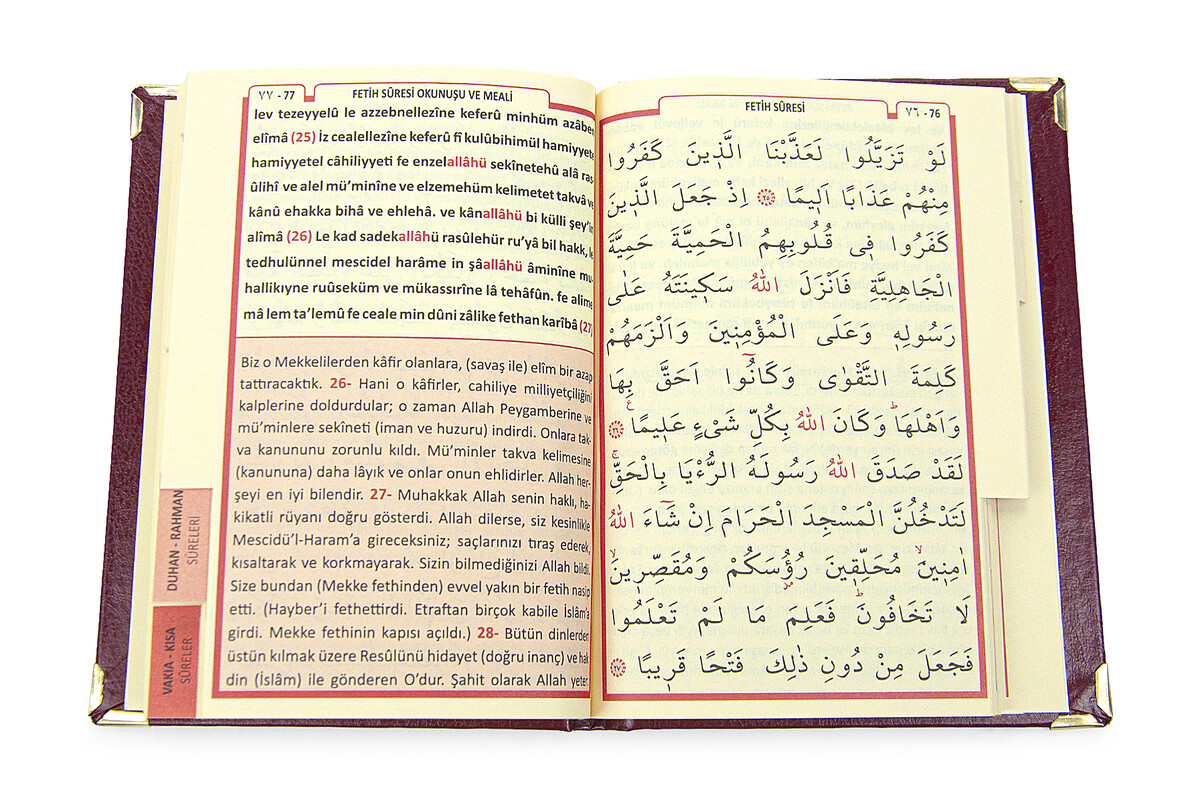 ٧٧ - 77
FETİH SÛRESİ OKUNUŞU VE MEALİ
lev tezeyyelû le azzebnellezîne keferû minhüm azâben
elîmâ (25) İz cealellezîne keferû fî kulûbihimül hamiyyete
hamiyyetel câhiliyyeti fe enzelallâhü sekînetehû alâ ras
ûlihî ve alel mü’minîne ve elzemehüm kelimetet takvâ ve
kânû ehakka bihâ ve ehlehâ. ve kânallâhü bi külli şey’in
alîmâ (26) Le kad sadekallâhü rasûlehür ru’yâ bil hakk, le
tedhulünnel mescidel harâme in şâallâhü âminîne mu-
hallikıyne ruûseküm ve mükassırîne lâ tehâfûn. fe alime
mâ lem ta’lemû fe ceale min dûni zâlike fethan karîbâ (27)
Biz o Mekkelilerden kâfir olanlara, (savaş ile) elîm bir azap
tattıracaktık. 26- Hani o kâfirler, cahiliye milliyetçiliğini
kalplerine doldurdular; o zaman Allah Peygamberine ve
mü’minlere sekîneti (iman ve huzuru) indirdi. Onlara tak-
va kanununu zorunlu kıldı. Mü’minler takva kelimesine
(kanununa) daha lâyık ve onlar onun ehlidirler. Allah her-
şeyi en iyi bilendir. 27- Muhakkak Allah senin haklı, ha-
kikatli rüyanı doğru gösterdi. Allah dilerse, siz kesinlikle
Mescidü’l-Haram’a gireceksiniz; saçlarınızı tıraş ederek,
kısaltarak ve korkmayarak. Sizin bilmediğinizi Allah bildi.
Size bundan (Mekke fethinden) evvel yakın bir fetih nasip
etti. (Hayber’i fethettirdi. Etraftan birçok kabile İslâm’a
girdi. Mekke fethinin kapısı açıldı.) 28- Bütün dinlerden
üstün kılmak üzere Resûlünü hidayet (doğru inanç) ve hak
din (İslâm) ile gönderen O’dur. Şahit olarak Allah yeter.
DUHAN - RAHMAN
SÛRELERİ
VAKIA - KISA
SÛRELER
FETİH SÛRESİ
٧٦ - 76
لَوْ تَزَيَّلُوا لَعَذَّبْنَا الَّذ۪ينَ كَفَرُوا
مِنْهُمْ عَذَابًا اَل۪يمًا ٢٥ اِذْ جَعَلَ الَّذ۪ينَ
كَفَرُوا ف۪ى قُلُوبِهِمُ الْحَمِيَّةَ حَمِيَّةَ
الْجَاهِلِيَّةِ فَاَنْزَلَ اللّٰهُ سَك۪ينَتَهُ عَلٰى
رَسُولِه۪ وَعَلَى الْمُؤْمِن۪ينَ وَاَلْزَمَهُمْ
كَلِمَةَ التَّقْوٰى وَكَانُٓوا اَحَقَّ بِهَا
وَاَهْلَهَاۜ وَكَانَ اللّٰهُ بِكُلِّ شَىْءٍ عَل۪يمًا ٢٦
لَقَدْ صَدَقَ اللّٰهُ رَسُولَهُ الرُّءْيَا بِالْحَقِّۚ
لَتَدْخُلُنَّ الْمَسْجِدَ الْحَرَامَ اِنْ شَٓاءَ اللّٰهُ
اٰمِن۪ينَۙ مُحَلِّق۪ينَ رُؤُسَكُمْ وَمُقَصِّر۪ينَۙ
لَا تَخَافُونَۜ فَعَلِمَ مَا لَمْ تَعْلَمُوا
فَجَعَلَ مِنْ دُونِ ذٰلِكَ فَتْحًا قَر۪يبًا ٢٧